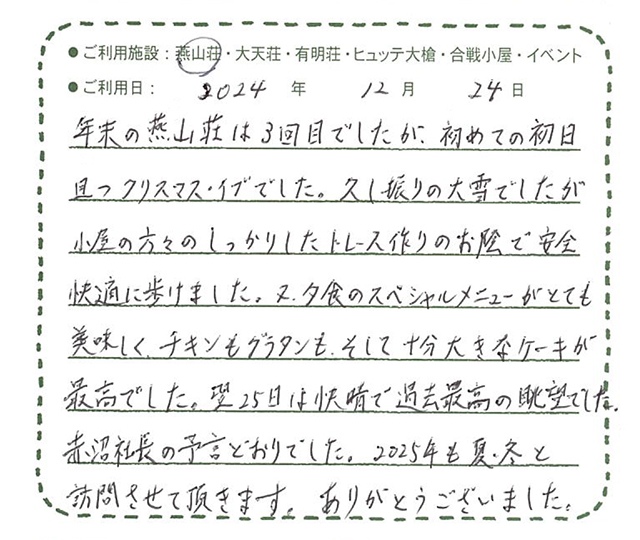 ●ご利用施設：燕山荘・大天荘・有明荘・ヒュッテ大槍・合戦小屋・イベント
●ご利用日：2024年12月24日
年末の燕山荘は3回目でしたが、初めての初日
且つクリスマス・イブでした。久し振りの大雪でしたが
小屋の方々のしっかりしたトレース作りのお陰で安全
快適に歩けました。又、夕食のスペシャルメニューがとても
美味しく、チキンもグラタンも、そして十分大きなケーキが
最高でした。翌25日は快晴で過去最高の眺望でした。
赤沼社長の予言どおりでした。2025年も夏・冬と
訪問させて頂きます。ありがとうございました。